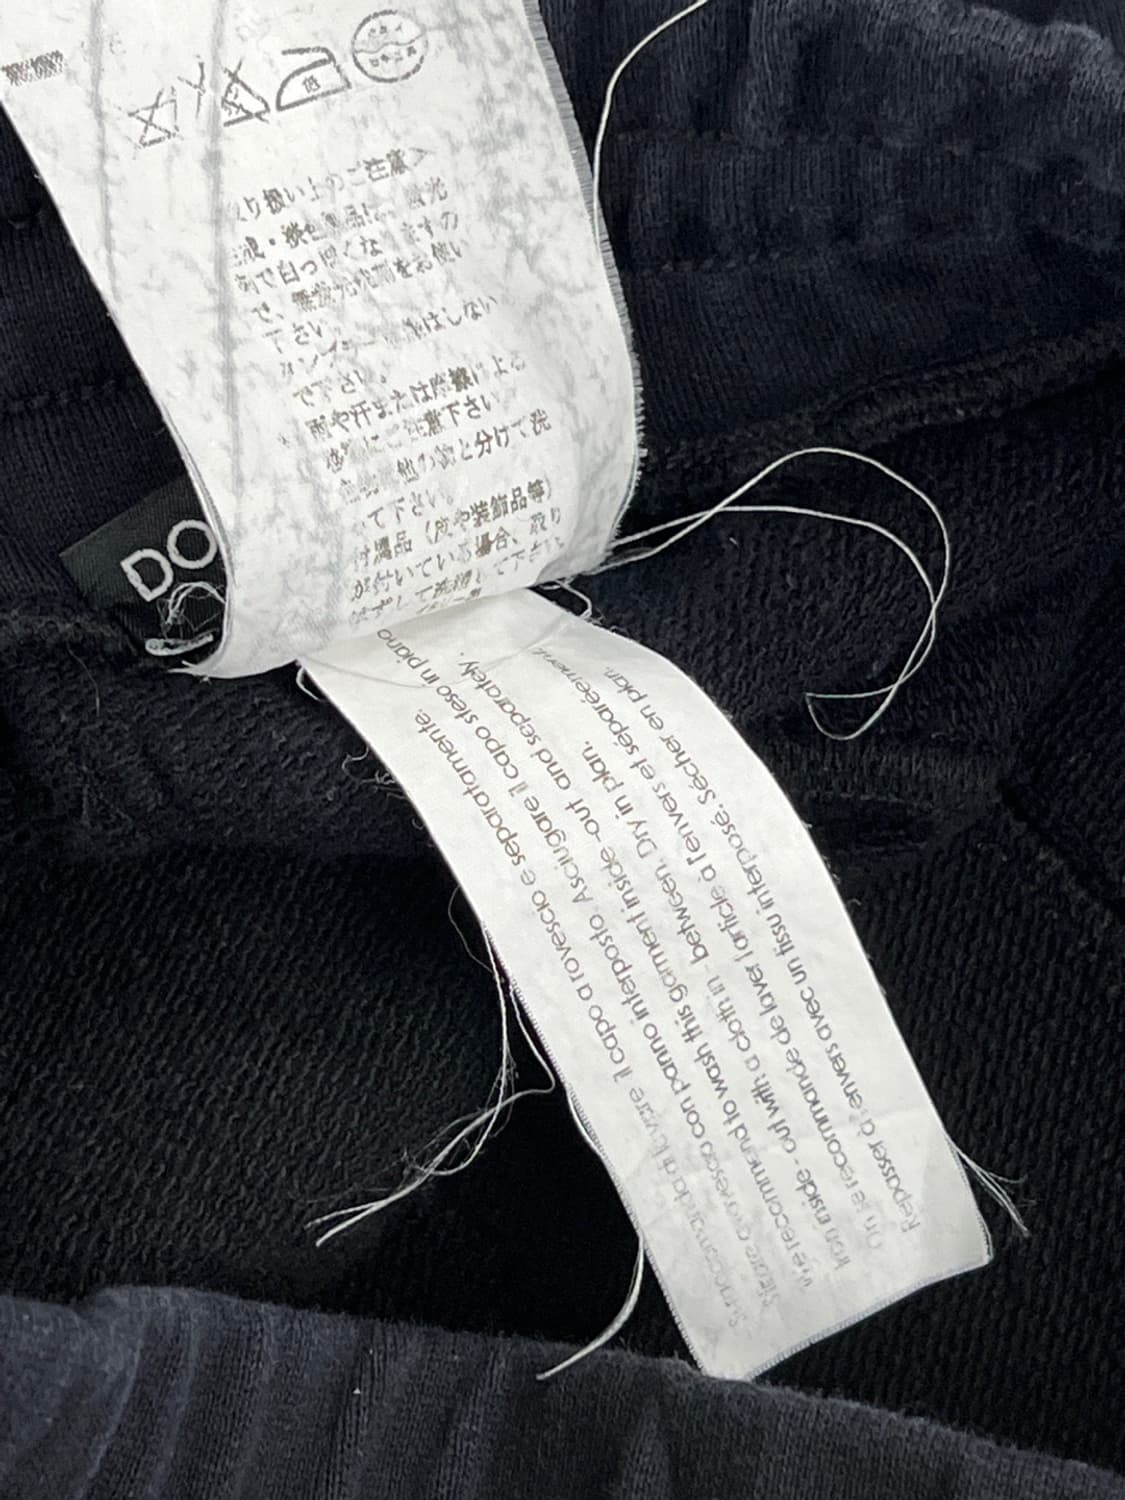 DO
り扱い上のご注意>
で、無蛍光洗剤をお使い
下さい。
はしない
で下さい。
雨や汗または摩擦による
にご注意下さい
他の物と分けて洗
て下さい。
付属品(皮や装飾品等)
が付いている場合、取り
はずして洗濯して下さい
Si raccomanda di lavare il capo a rovescio e separatamente.
Stirare a rovescio con panno interposto. Asciugare il capo steso in piano
We recommend to wash this garment inside-out and separately.
Iron inside - out with a cloth in - between. Dry in plan.
On recommande de laver l'article à l'envers et séparéement.
Repasser à l'envers avec un tissu interposé. Sécher en plan.